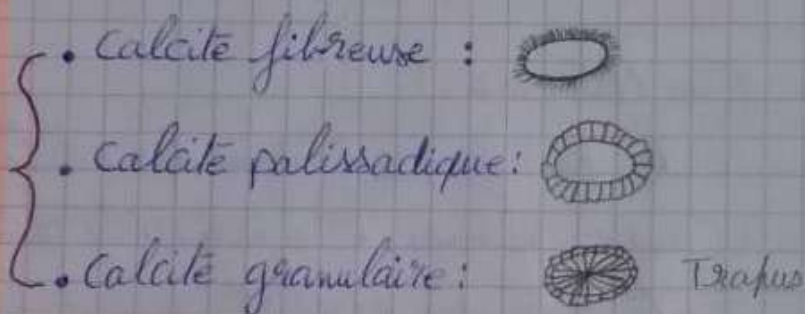 . Calcite fibreuse :
. Calcite palissadique :
. Calcite granulaire : Trapus